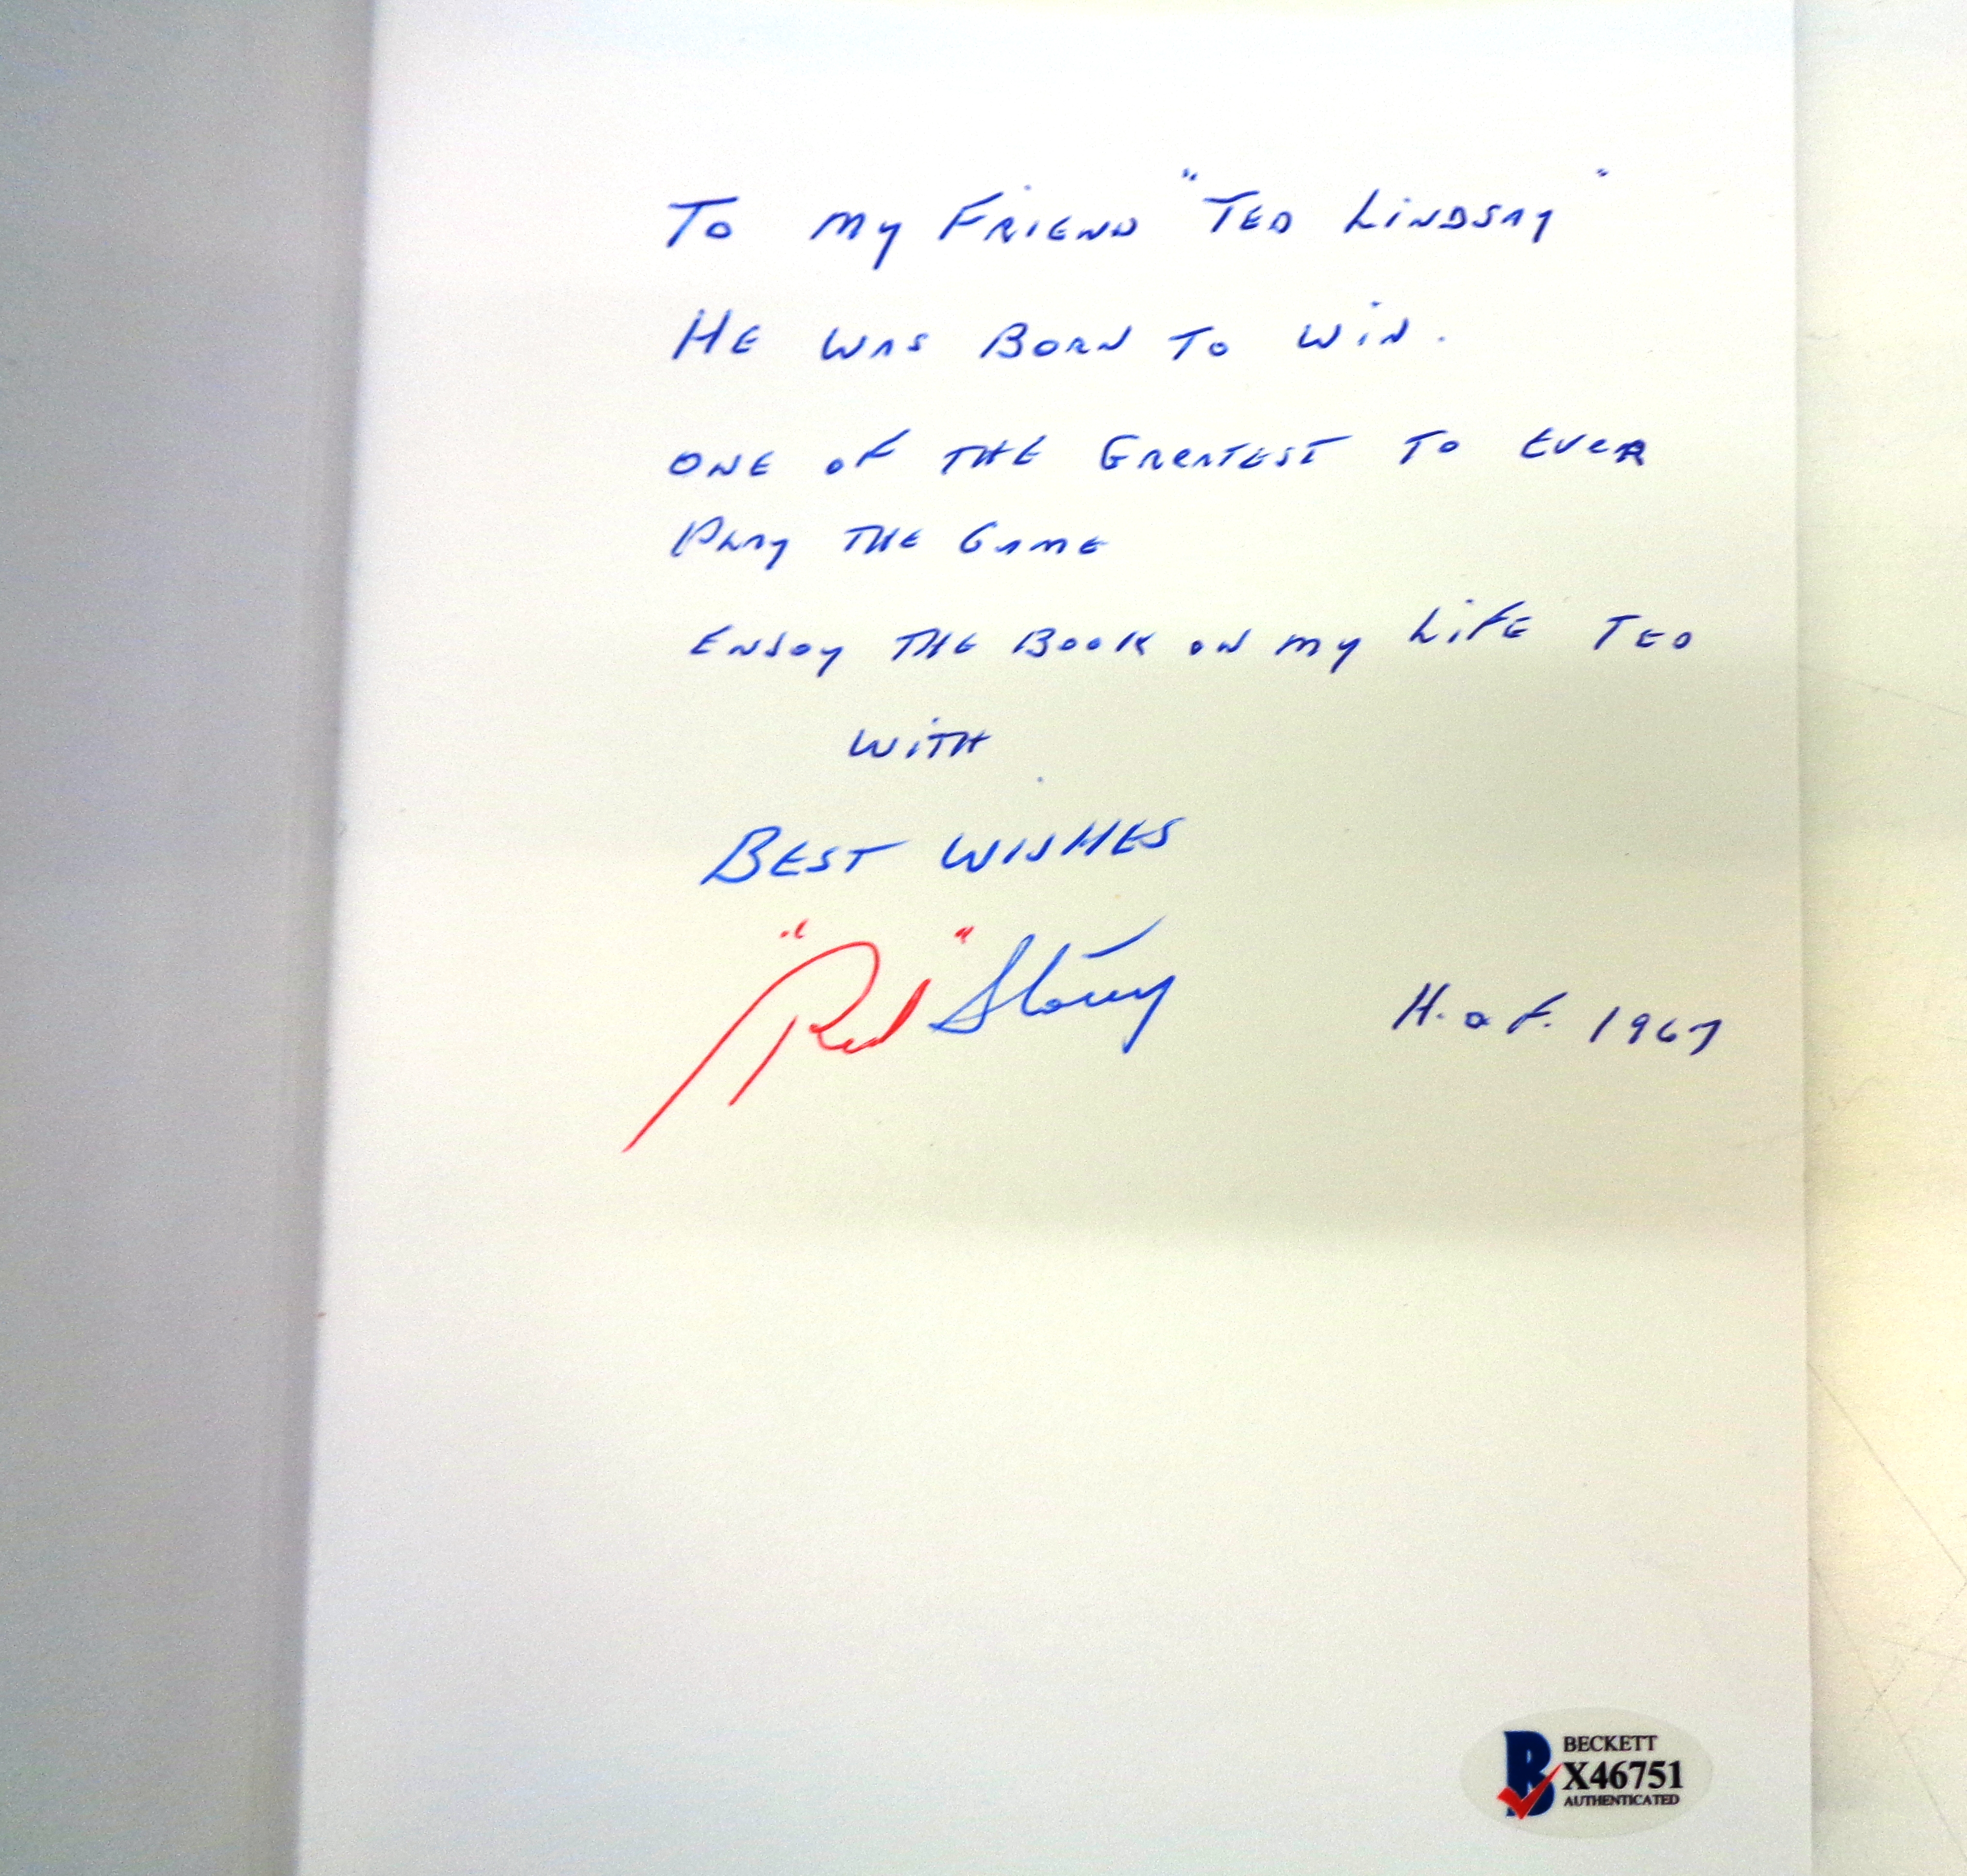 To my FRIEND "TED LINDSAY"
HE WAS BORN TO WIN.
ONE OF THE GREATEST TO EVER
PLAY THE GAME
ENJOY THE BOOK ON my LIFE TED
WITH
BEST WISHES
"Red" Storey H. o F. 1967
BECKETT
X46751
AUTHENTICATED